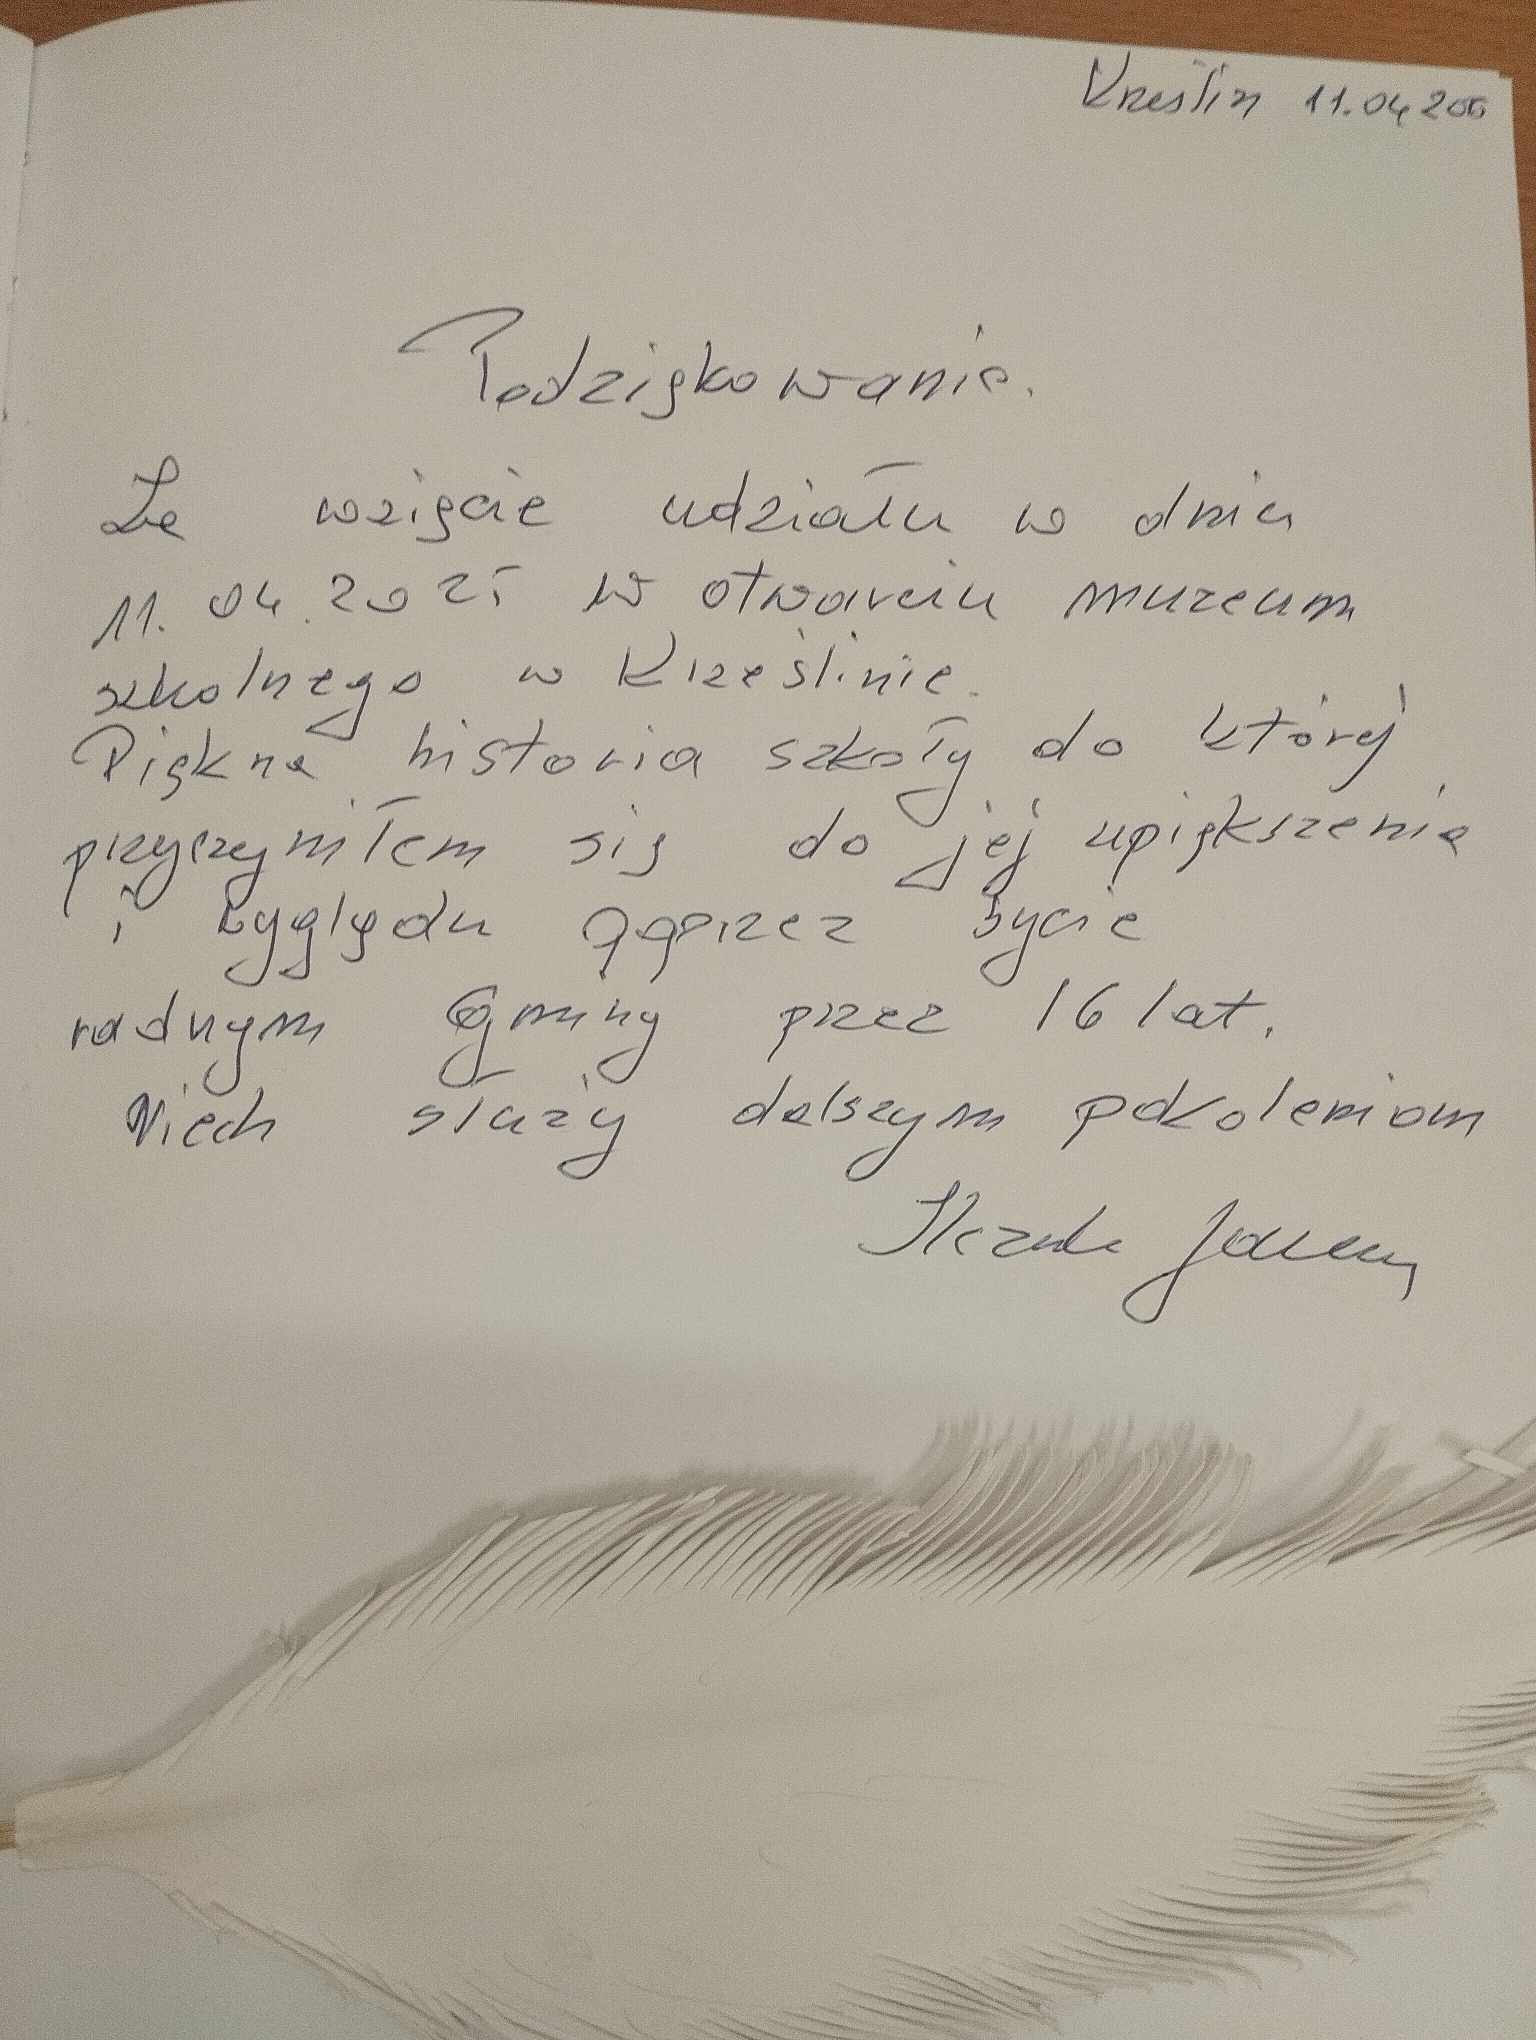 Krześlin 11.04.200
Podziękowanie.
Za wzięcie udziału w dniu
11.04.2025 w otwarciu muzeum
szkolnego w Krześlinie.
Piękna historia szkoły do której
przyczyniłem się do jej upiększenia
i wyglądu przez bycie
radnym Gminy przez 16 lat.
Niech służy dalszym pokoleniom